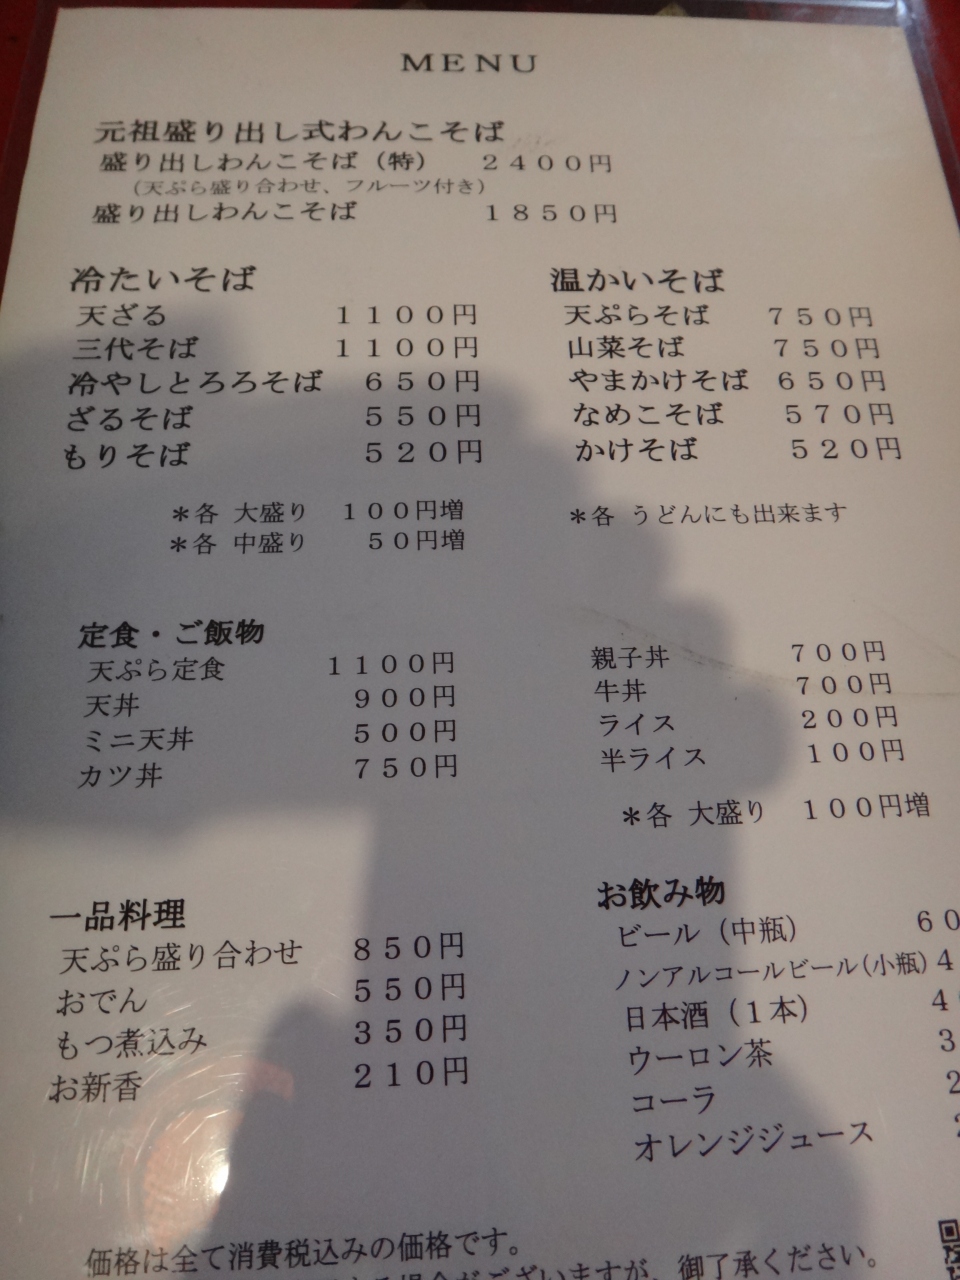 MENU
元祖盛り出し式わんこそば
盛り出しわんこそば（特） ２４００円
（天ぷら盛り合わせ、フルーツ付き）
盛り出しわんこそば １８５０円
冷たいそば
天ざる １１００円
三代そば １１００円
冷やしとろろそば ６５０円
ざるそば ５５０円
もりそば ５２０円
＊各 大盛り １００円増
＊各 中盛り ５０円増
温かいそば
天ぷらそば ７５０円
山菜そば ７５０円
やまかけそば ６５０円
なめこそば ５７０円
かけそば ５２０円
＊各 うどんにも出来ます
定食・ご飯物
天ぷら定食 １１００円
天丼 ９００円
ミニ天丼 ５００円
カツ丼 ７５０円
親子丼 ７００円
牛丼 ７００円
ライス ２００円
半ライス １００円
＊各 大盛り １００円増
一品料理
天ぷら盛り合わせ ８５０円
おでん ５５０円
もつ煮込み ３５０円
お新香 ２１０円
お飲み物
ビール（中瓶） ６０
ノンアルコールビール（小瓶） ４
日本酒（１本） ４
ウーロン茶 ３
コーラ ２
オレンジジュース
価格は全て消費税込みの価格です。
場合がございますが、御了承ください。